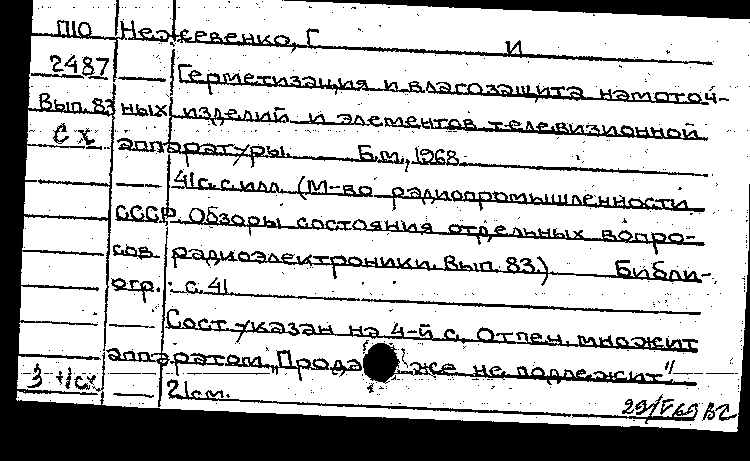 П10 Нежевенко, Г И
2487 Герметизация и влагозащита намоточ-
Вып. 83 ных изделий и элементов телевизионной
Сх аппаратуры. Б.м., 1968.
41с. с илл. (М-во радиопромышленности
СССР. Обзоры состояния отдельных вопро-
сов радиоэлектроники. Вып. 83.) Библи-
огр.: с. 41.
Сост. указан на 4-й с. Отпен. множит
аппаратом. „Прода же не подлежит"
3 +1сх 21см.
29/V69